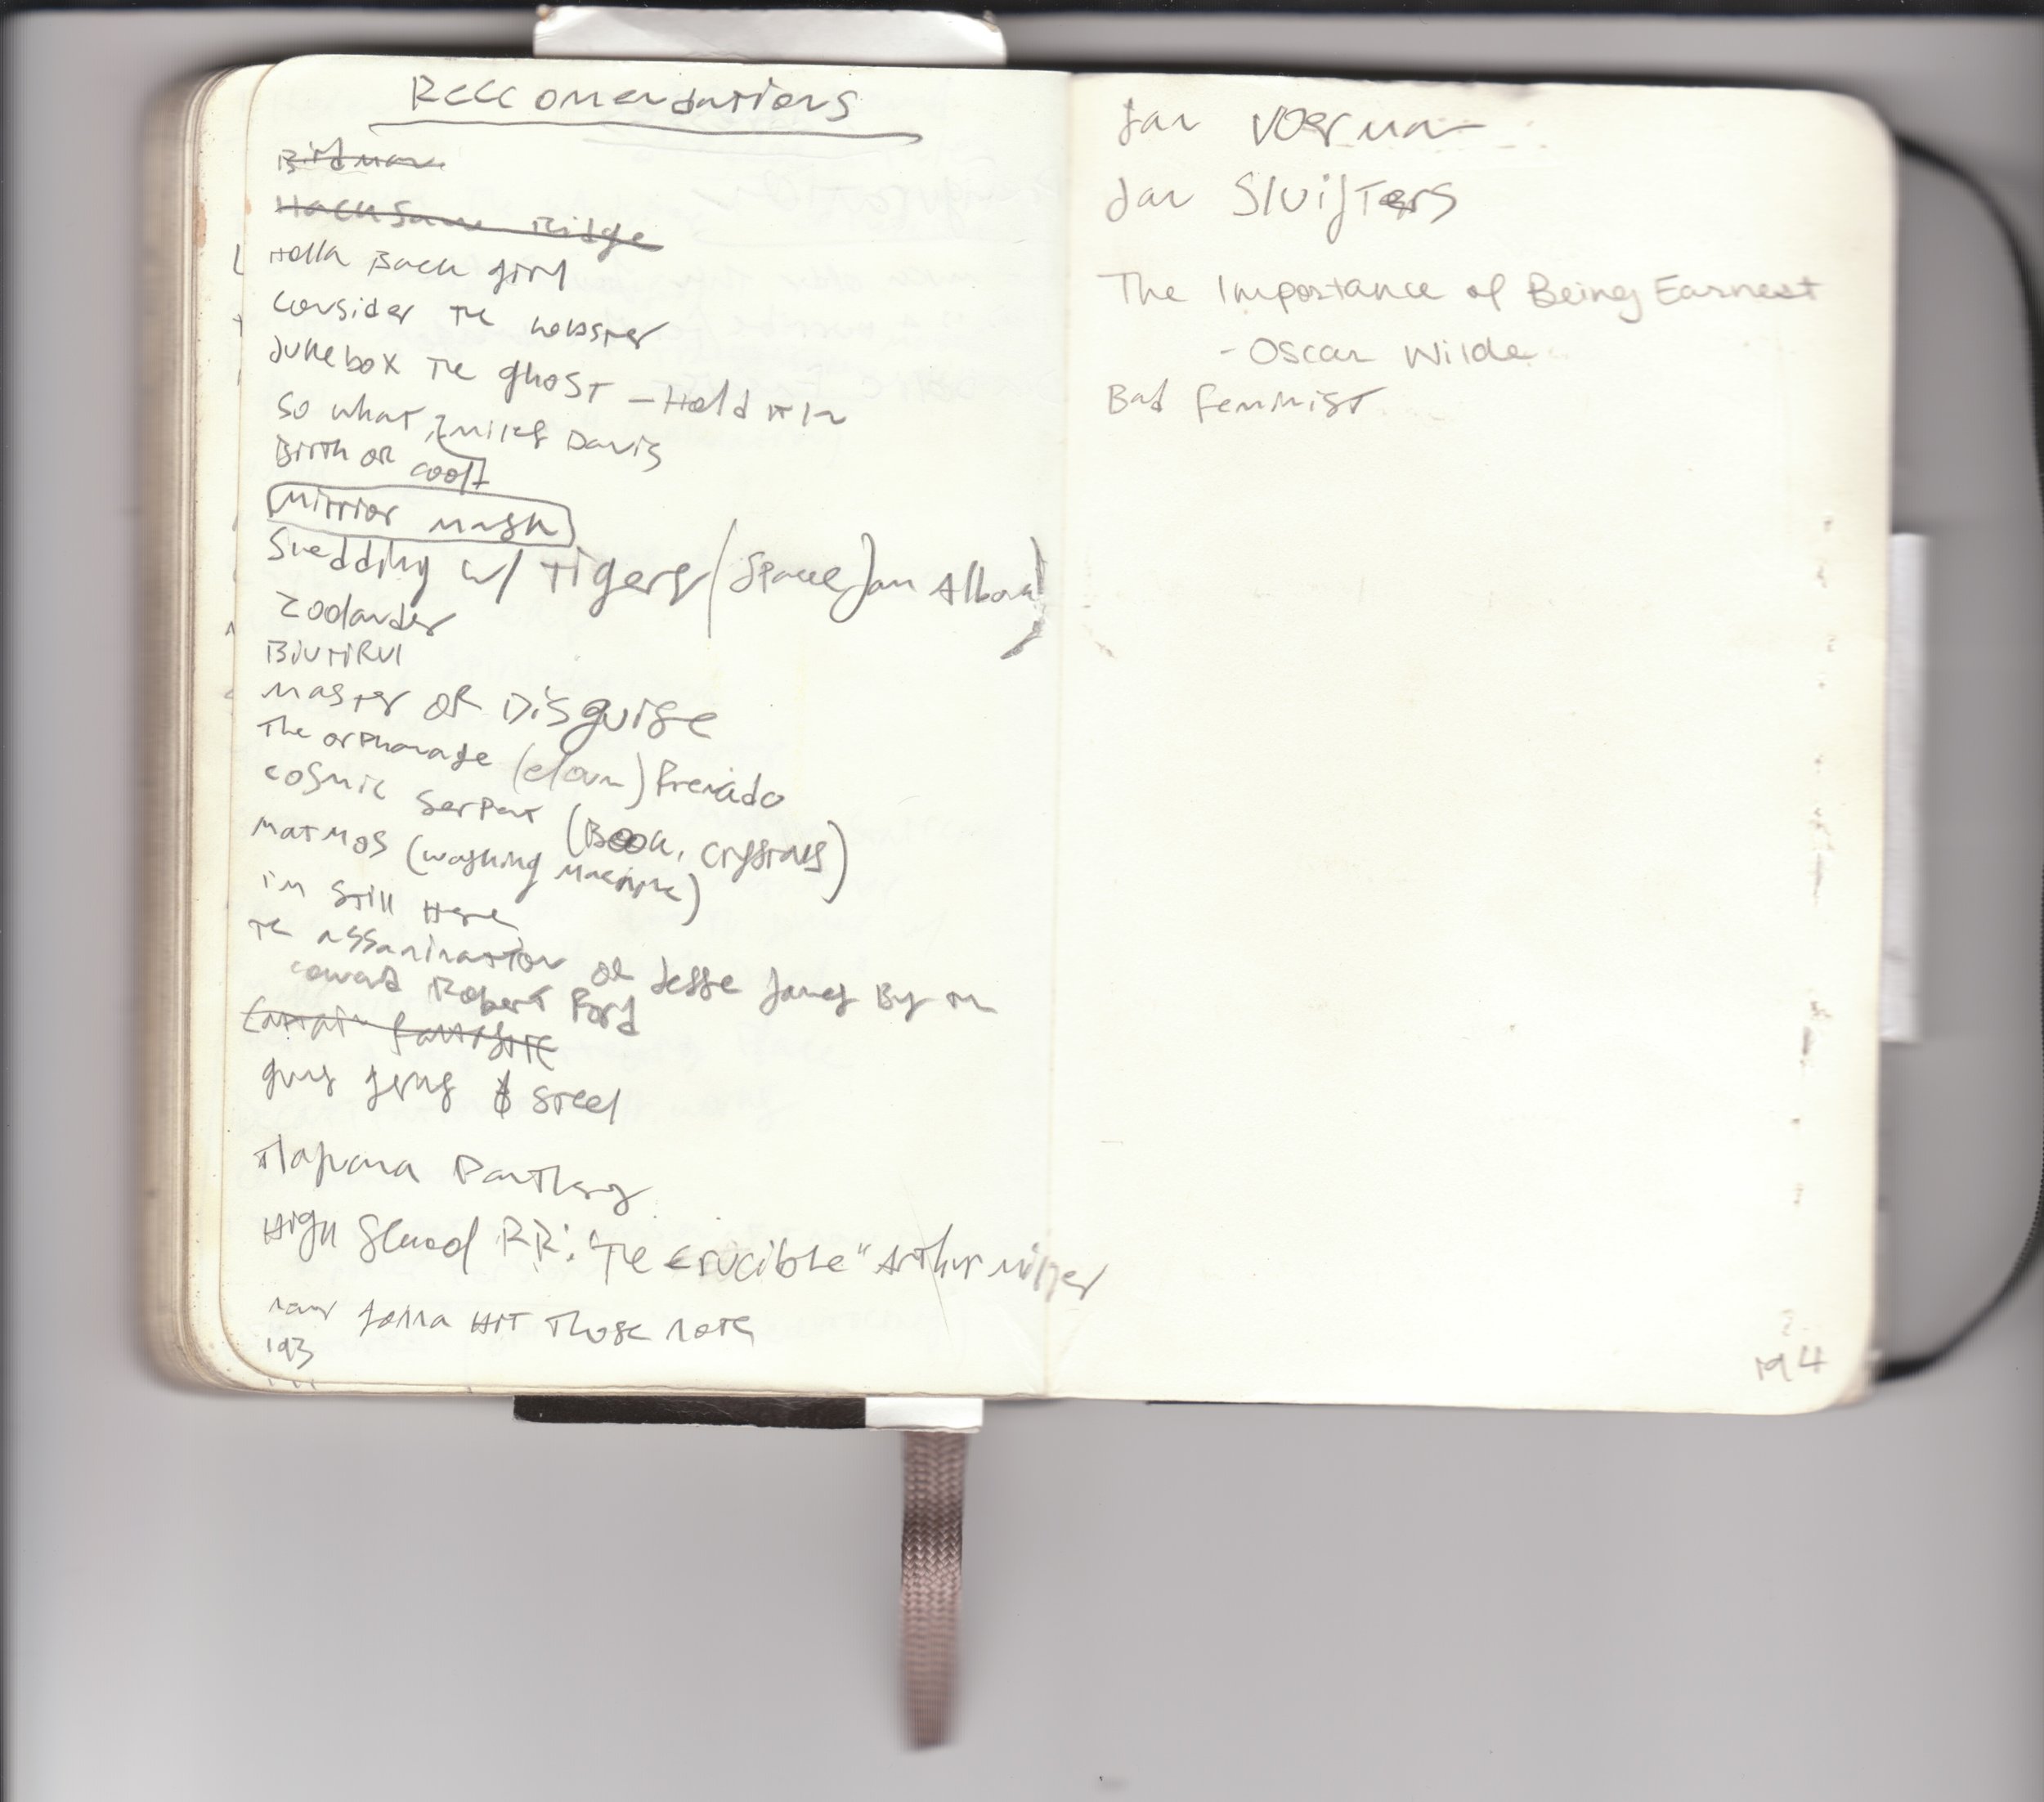 Reccomendations
Birdman
Hacksaw Ridge
Holla Back girl
Consider The Lobster
Jukebox The ghost - Hold it in
So what, } Miles Davis
Birth of cool
Mirror mask
Sledding w/ Tigers (Space Jam Album)
Zoolander
Biutiful
Master of Disguise
The orphanage (clown)
cosmic serpent (Book, crystals)
Matmos (washing machine)
i'm Still Here
The assasination of Jesse James By the
coward Robert Ford
Captain fantastic
guns germs & steel
High School RR: "The crucible" Arthur Miller
gonna HIT Those note
193
Jan Voerman
Jan Sluijters
The Importance of Being Earnest
- Oscar Wilde
Bad feminist
194